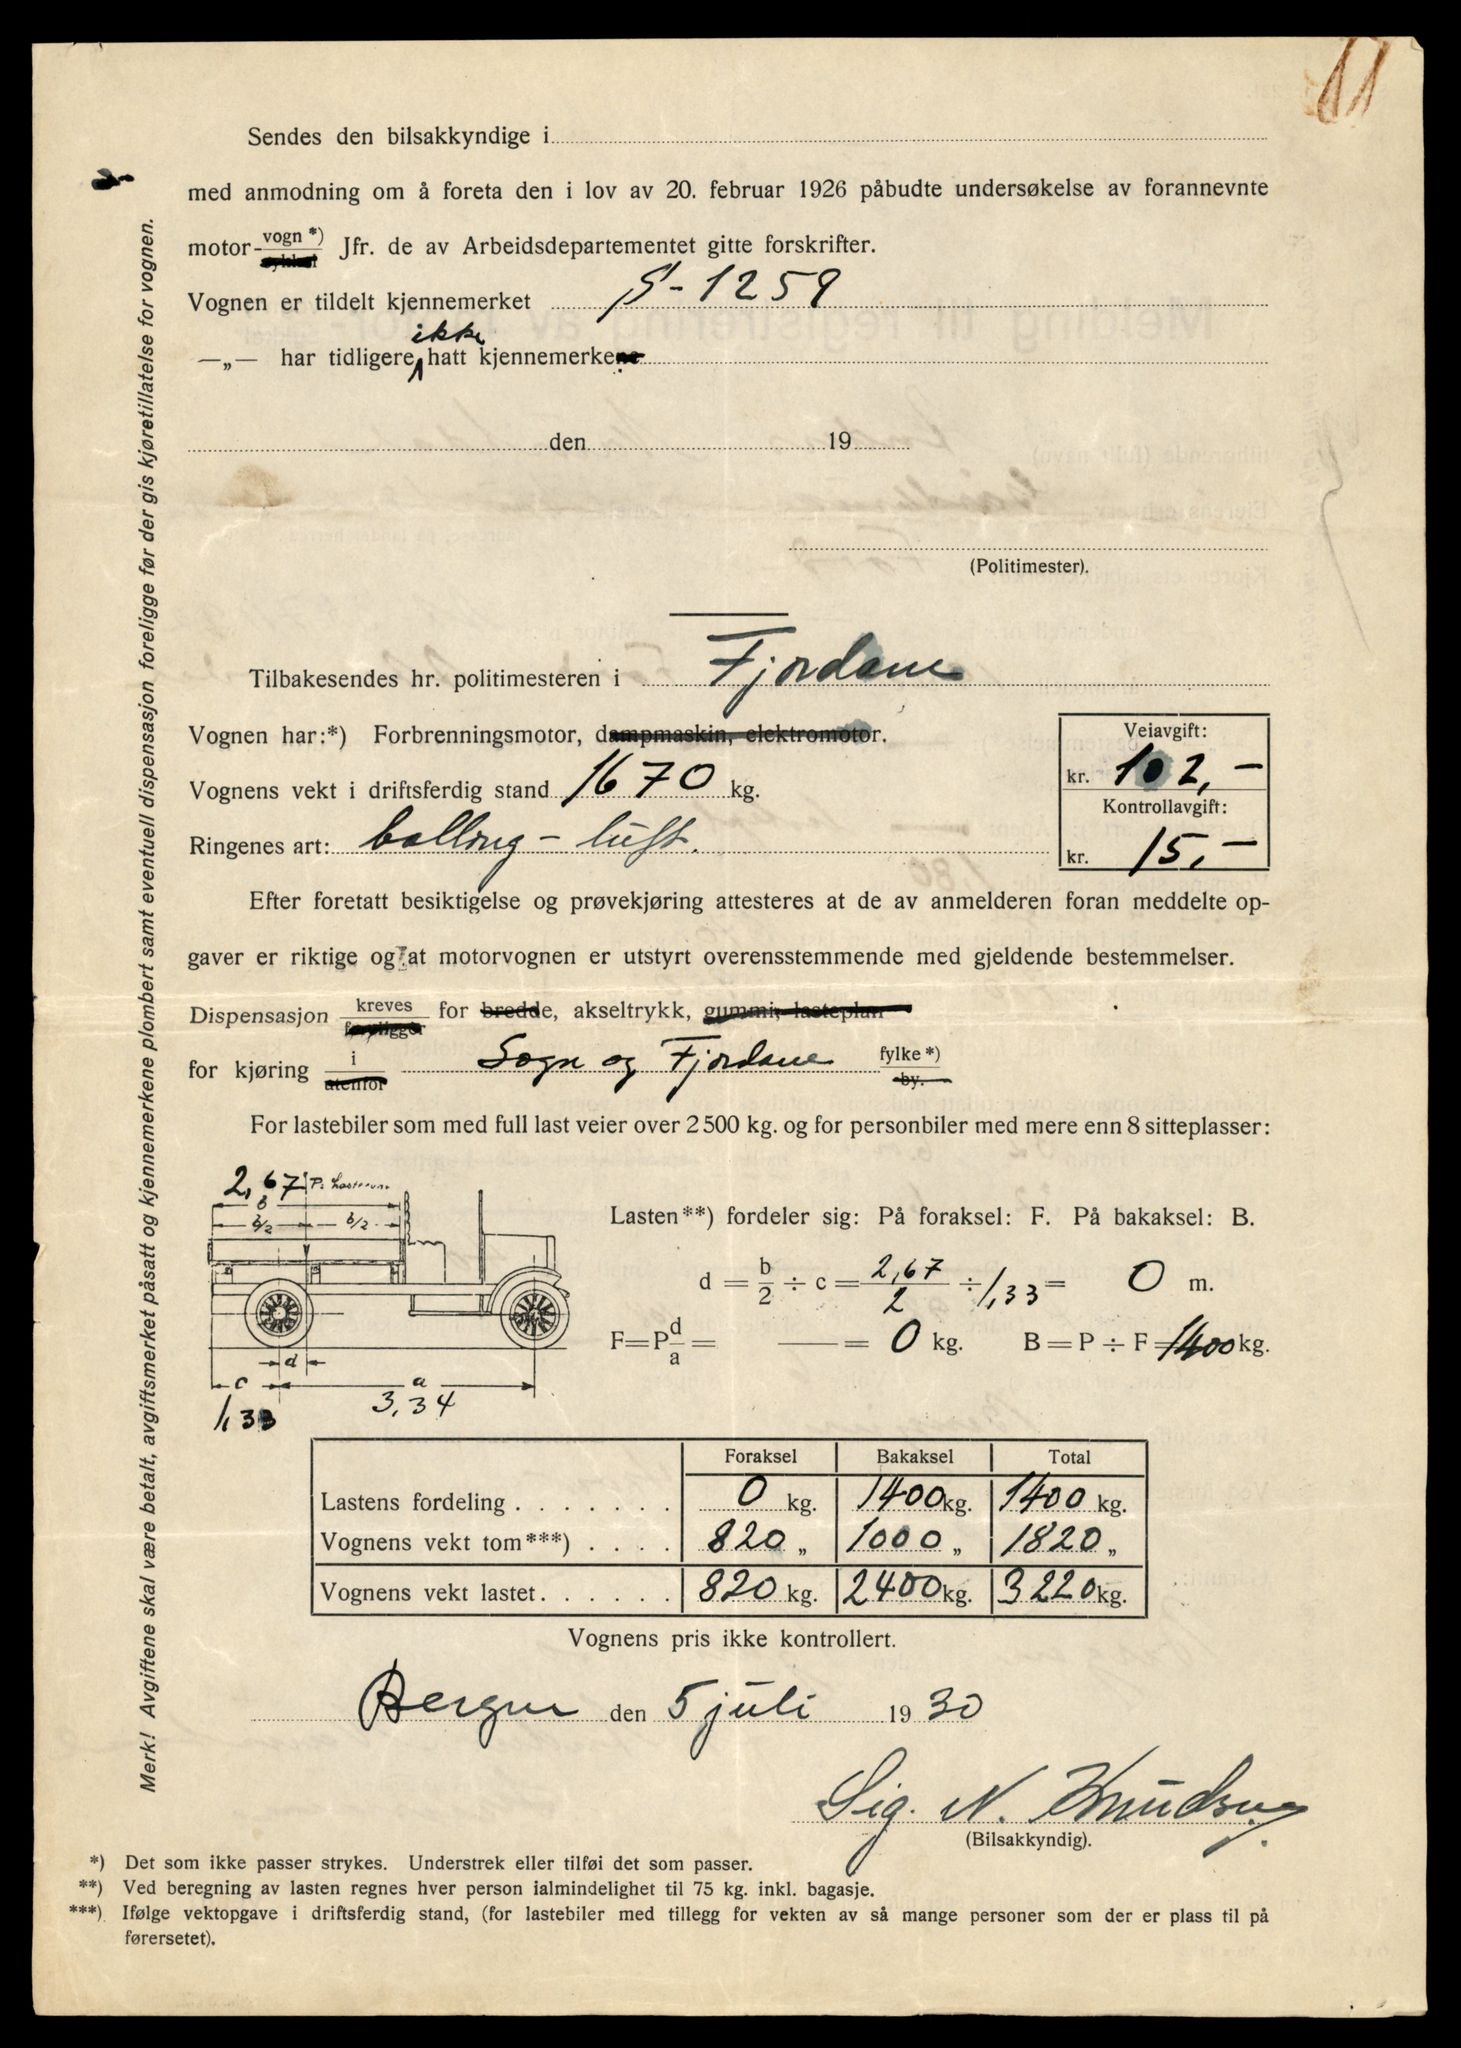 11
Sendes den bilsakkyndige i
med anmodning om å foreta den i lov av 20. februar 1926 påbudte undersøkelse av forannevnte
motor- vogn *) Jfr. de av Arbeidsdepartementet gitte forskrifter.
Vognen er tildelt kjennemerket S-1259
ikke
—„— har tidligere hatt kjennemerkene
den 19
(Politimester).
Tilbakesendes hr. politimesteren i Fjordane
Vognen har:*) Forbrenningsmotor, dampmaskin, elektromotor.
Veiavgift:
kr. 102,-
Vognens vekt i driftsferdig stand 1670 kg.
Kontrollavgift:
kr. 15,-
Ringenes art: balling - luft.
Efter foretatt besiktigelse og prøvekjøring attesteres at de av anmelderen foran meddelte op-
gaver er riktige og at motorvognen er utstyrt overensstemmende med gjeldende bestemmelser.
Dispensasjon kreves foreligger for bredde, akseltrykk, gummi, lasteplan
for kjøring i utenfor Sogn og Fjordane fylke*) by.
For lastebiler som med full last veier over 2500 kg. og for personbiler med mere enn 8 sitteplasser:
2,67 P = Lastesum.
b
b/2 b/2
Lasten**) fordeler sig: På foraksel: F. På bakaksel: B.
d = b/2 ÷ c = 2,67/2 ÷ 1,33 = 0 m.
F=P d/a = — = 0 kg. B = P ÷ F = 1400 kg.
d
c a
1,33 3,34
Foraksel Bakaksel Total
Lastens fordeling . . . . . . . 0 kg. 1400 kg. 1400 kg.
Vognens vekt tom***) . . . . 820 „ 1000 „ 1820 „
Vognens vekt lastet . . . . . . 820 kg. 2400 kg. 3220 kg.
Vognens pris ikke kontrollert.
Bergen den 5 juli 1930
Sig. N. Knudsen
(Bilsakkyndig).
*) Det som ikke passer strykes. Understrek eller tilføi det som passer.
**) Ved beregning av lasten regnes hver person ialmindelighet til 75 kg. inkl. bagasje.
***) Ifølge vektopgave i driftsferdig stand, (for lastebiler med tillegg for vekten av så mange personer som der er plass til på
førersetet).
Merk! Avgiftene skal være betalt, avgiftsmerket påsatt og kjennemerkene plombert samt eventuell dispensasjon foreligge før der gis kjøretillatelse for vognen.